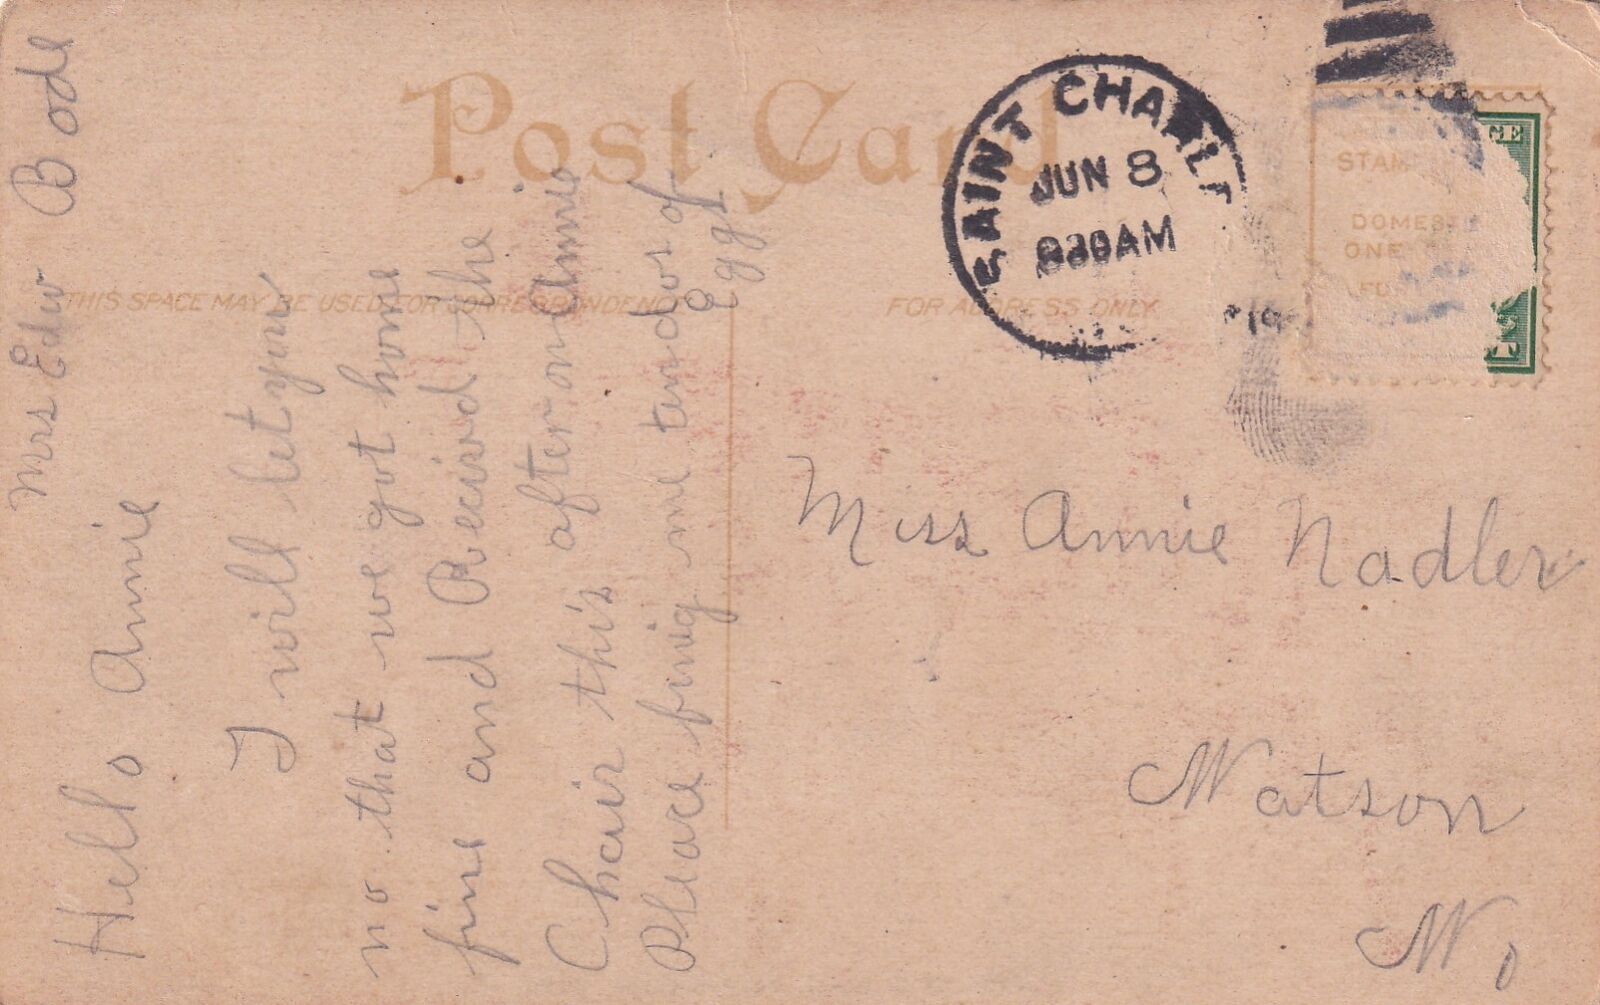 Post Card
THIS SPACE MAY BE USED FOR CORRESPONDENCE
FOR ADDRESS ONLY
SAINT CHARLE
JUN 8
830AM
STAM
DOMES
ONE
GE
Mrs Edw Bode
Hello Annie
I will let you
no that we got home
fine and Received the
Chair this afternoon Annie
Please bring me tendos of
Eggs
Miss Annie Nadler
Watson
Mo